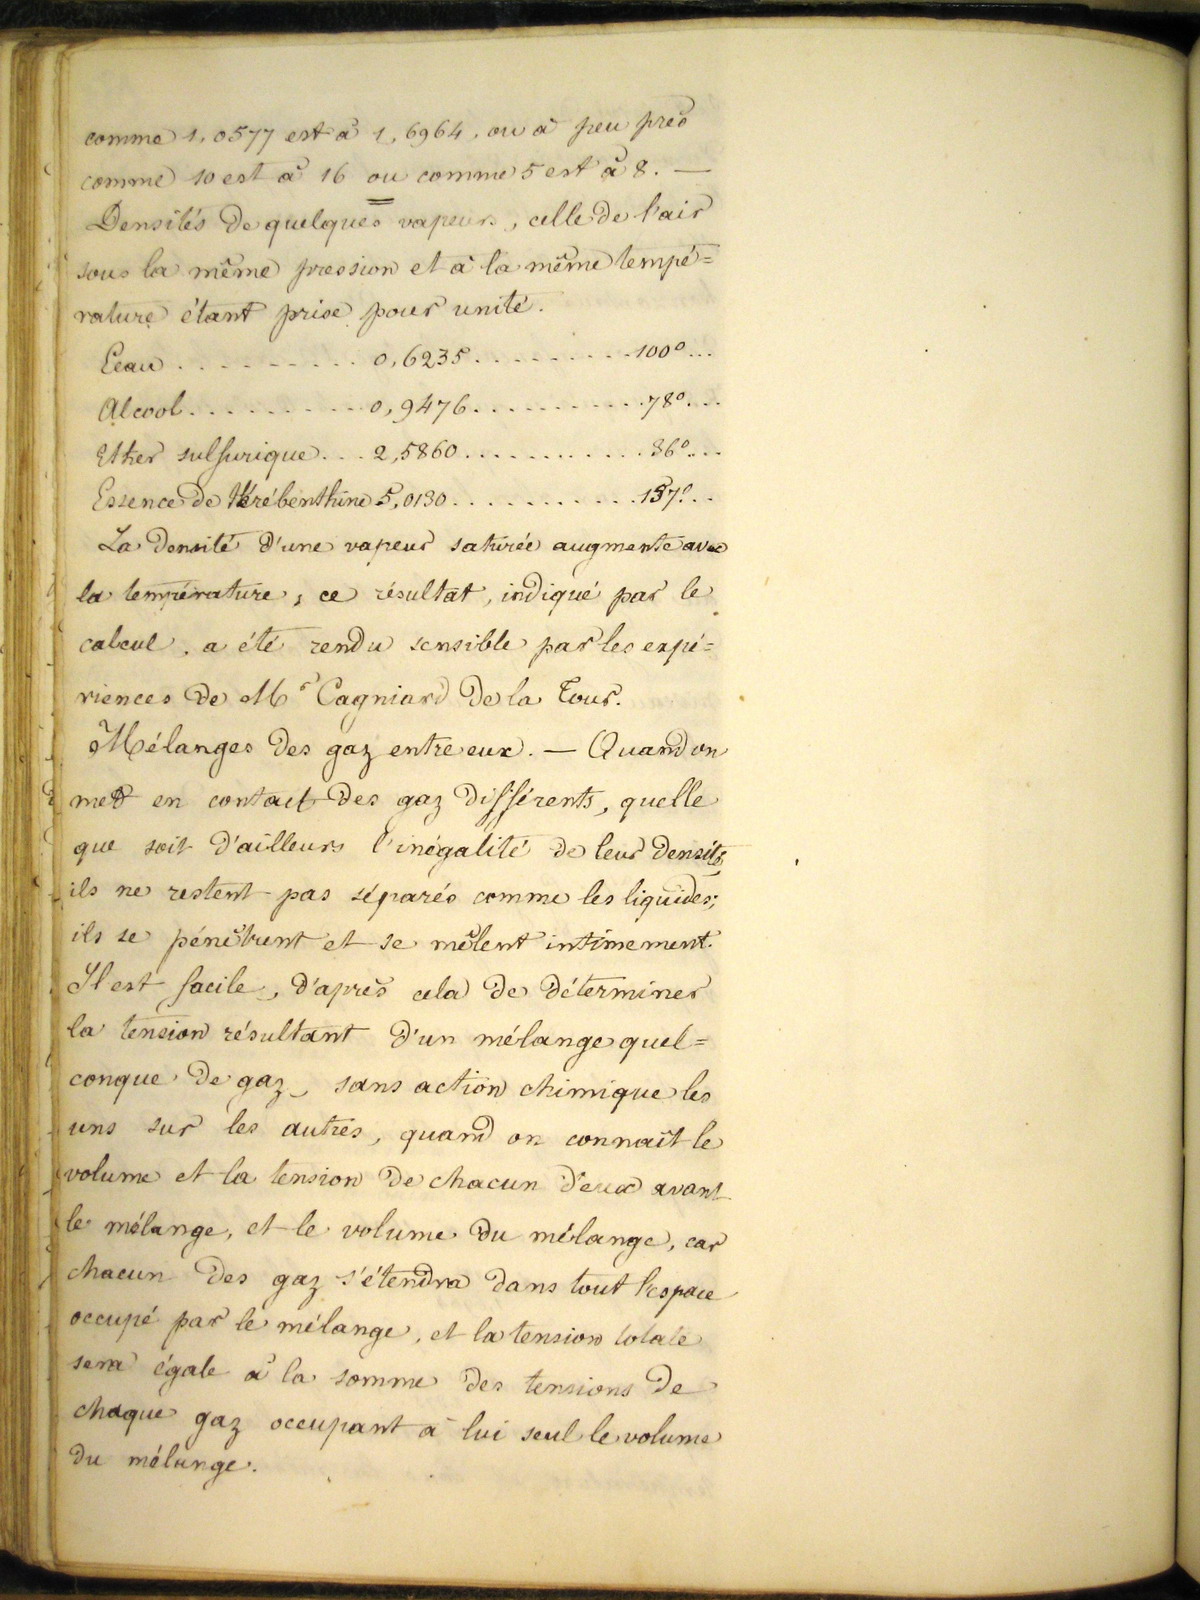 comme 1,0577 est à 1,6964, ou à peu près
comme 10 est à 16 ou comme 5 est à 8. —
Densités de quelques vapeurs, celle de l'air
sous la même pression et à la même tempé=
rature étant prise pour unité.
Eeau . . . . . . . . . 0,6235 . . . . . . . . . 100° . . .
Alcool . . . . . . . . . 0,9476 . . . . . . . . . . 78° . . .
Ether sulfurique . . . 2,5860 . . . . . . . . . . . 36° . . .
Essence de térébenthine 5,0130 . . . . . . . . . . . 157° . .
La densité d'une vapeur saturée augmente avec
la température ; ce résultat, indiqué par le
calcul, a été rendu sensible par les expé=
riences de Mr Cagniard de la Tour.
Mélanges des gaz entre eux. — Quand on
met en contact des gaz différents, quelle
que soit d'ailleurs l'inégalité de leur densité,
ils ne restent pas séparés comme les liquides;
ils se pénètrent et se mêlent intimement.
Il est facile, d'après cela de déterminer
la tension résultant d'un mélange quel=
conque de gaz, sans action chimique les
uns sur les autres, quand on connaît le
volume et la tension de chacun d'eux avant
le mélange, et le volume du mélange, car
chacun des gaz s'étendra dans tout l'espace
occupé par le mélange, et la tension totale
sera égale à la somme des tensions de
chaque gaz occupant à lui seul le volume
du mélange.